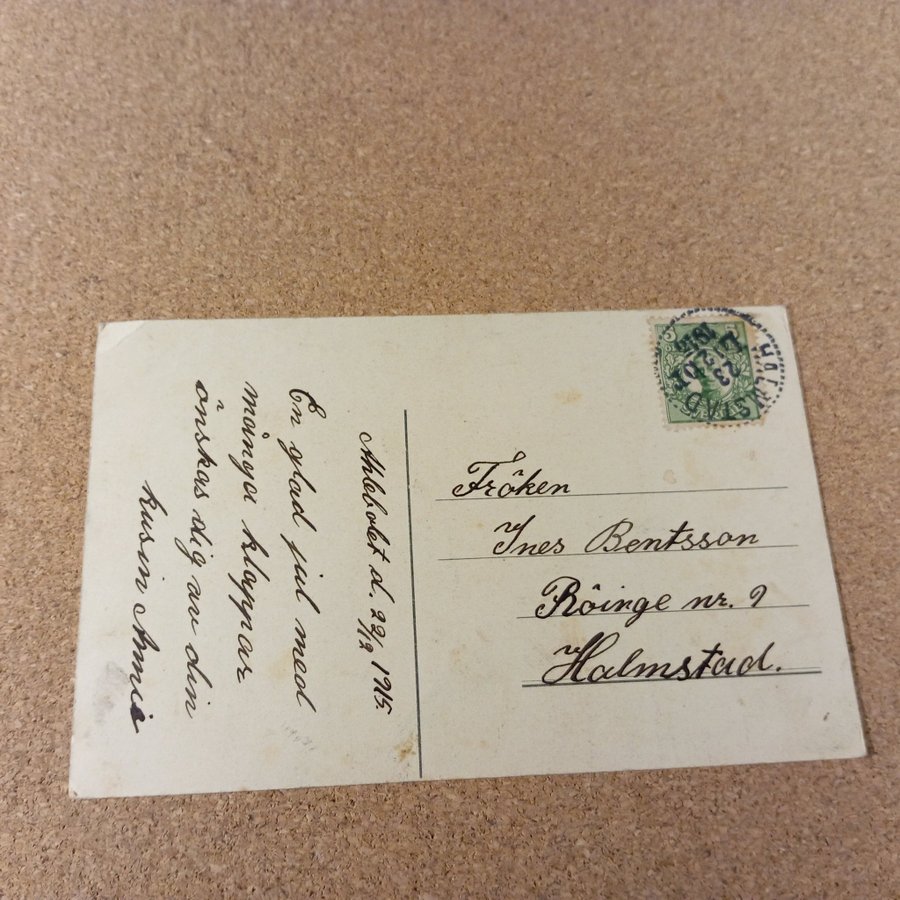 Ahlebolet d. 22/12 1915.
En glad jul med
många klappar
önskas dig av din
kusin Anna
Fröken
Ines Bentsson
Röinge nr. 9
Halmstad.
HALMSTAD
23 12
5